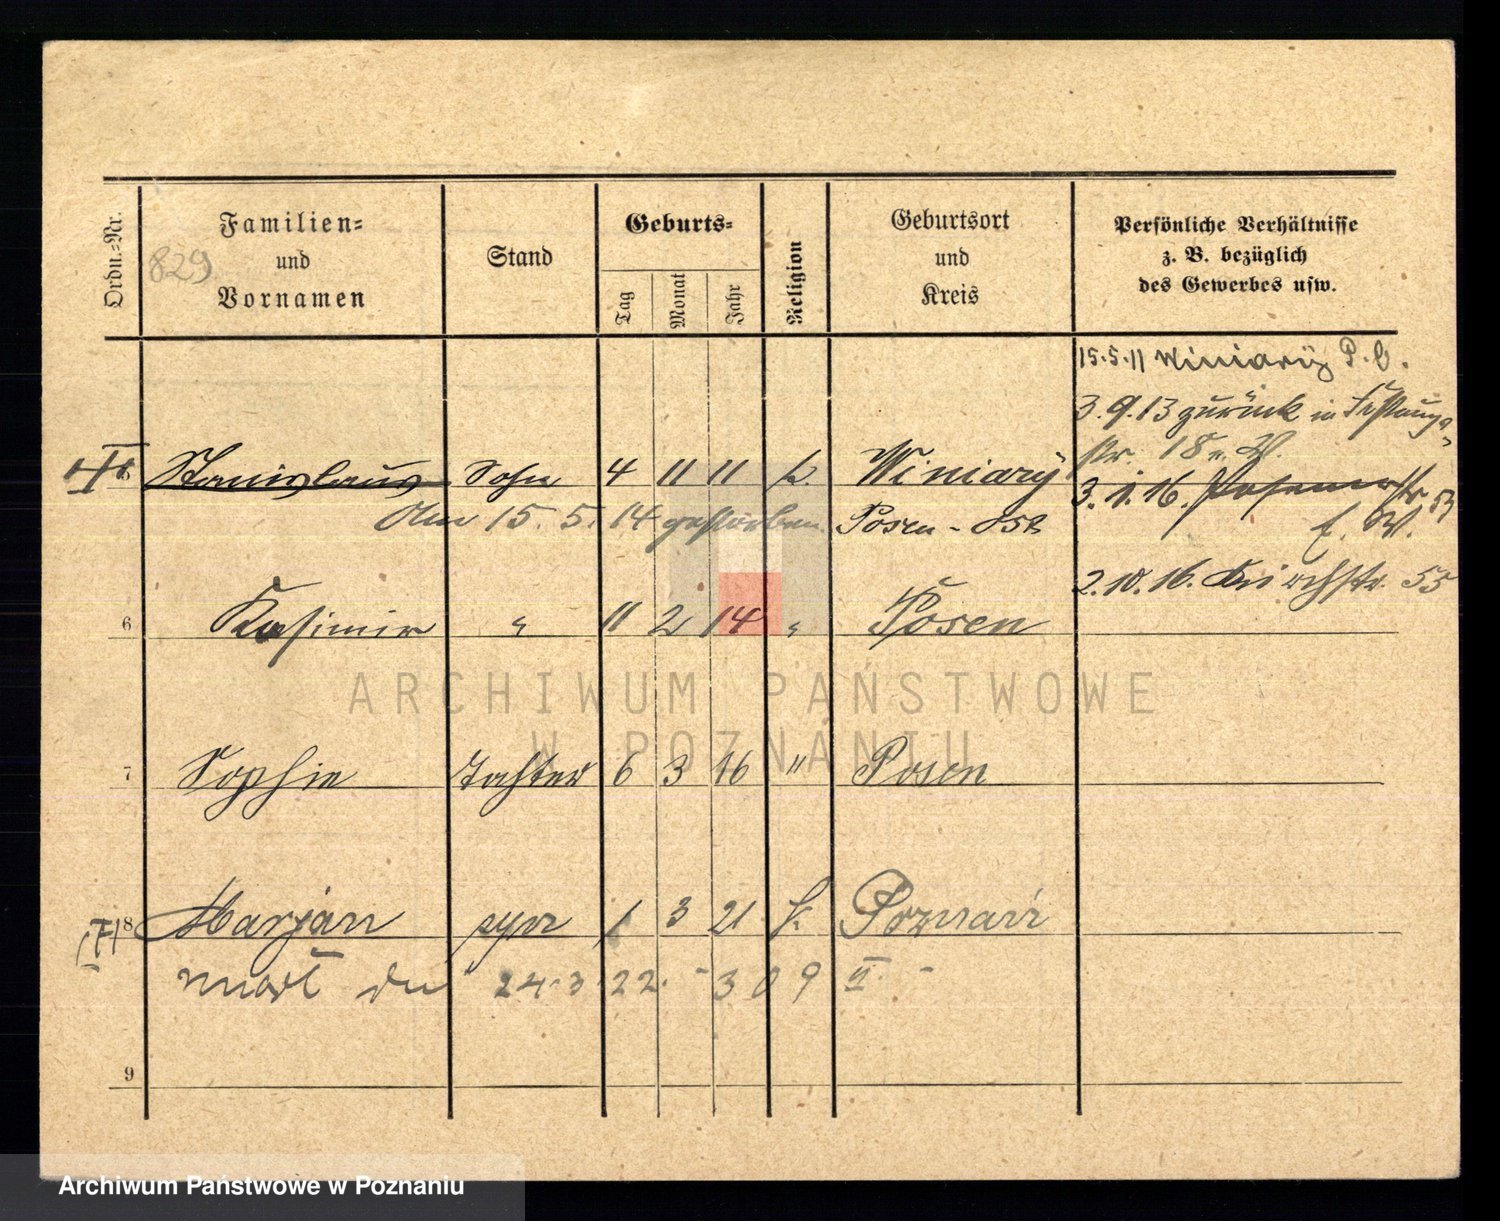 Ordn.=Nr.
Familien=
und
Vornamen
829
Stand
Geburts=
Tag
Monat
Jahr
Religion
Geburtsort
und
Kreis
Persönliche Verhältnisse
z. B. bezüglich
des Gewerbes usw.
15.5.11 Winiary P. O.
3.9.13 zurück in Festungs-
str. 18 v. W.
5 Stanislaus Sohn 4 11 11 k. Winiary
3.1.16. Posenerstr 53
Am 15. 5. 14 gestorben. Posen-Ost
E. W.
2.10.16. Kirchstr. 55
6 Kasimir " 11 2 14 " Posen
ARCHIWUM PAŃSTWOWE
W POZNANIU
7 Sophie Tochter 6 3 16 " Posen
8 Marjan syn 1 3 21 k. Poznań
24.3.22. - 309 II. -
9
Archiwum Państwowe w Poznaniu